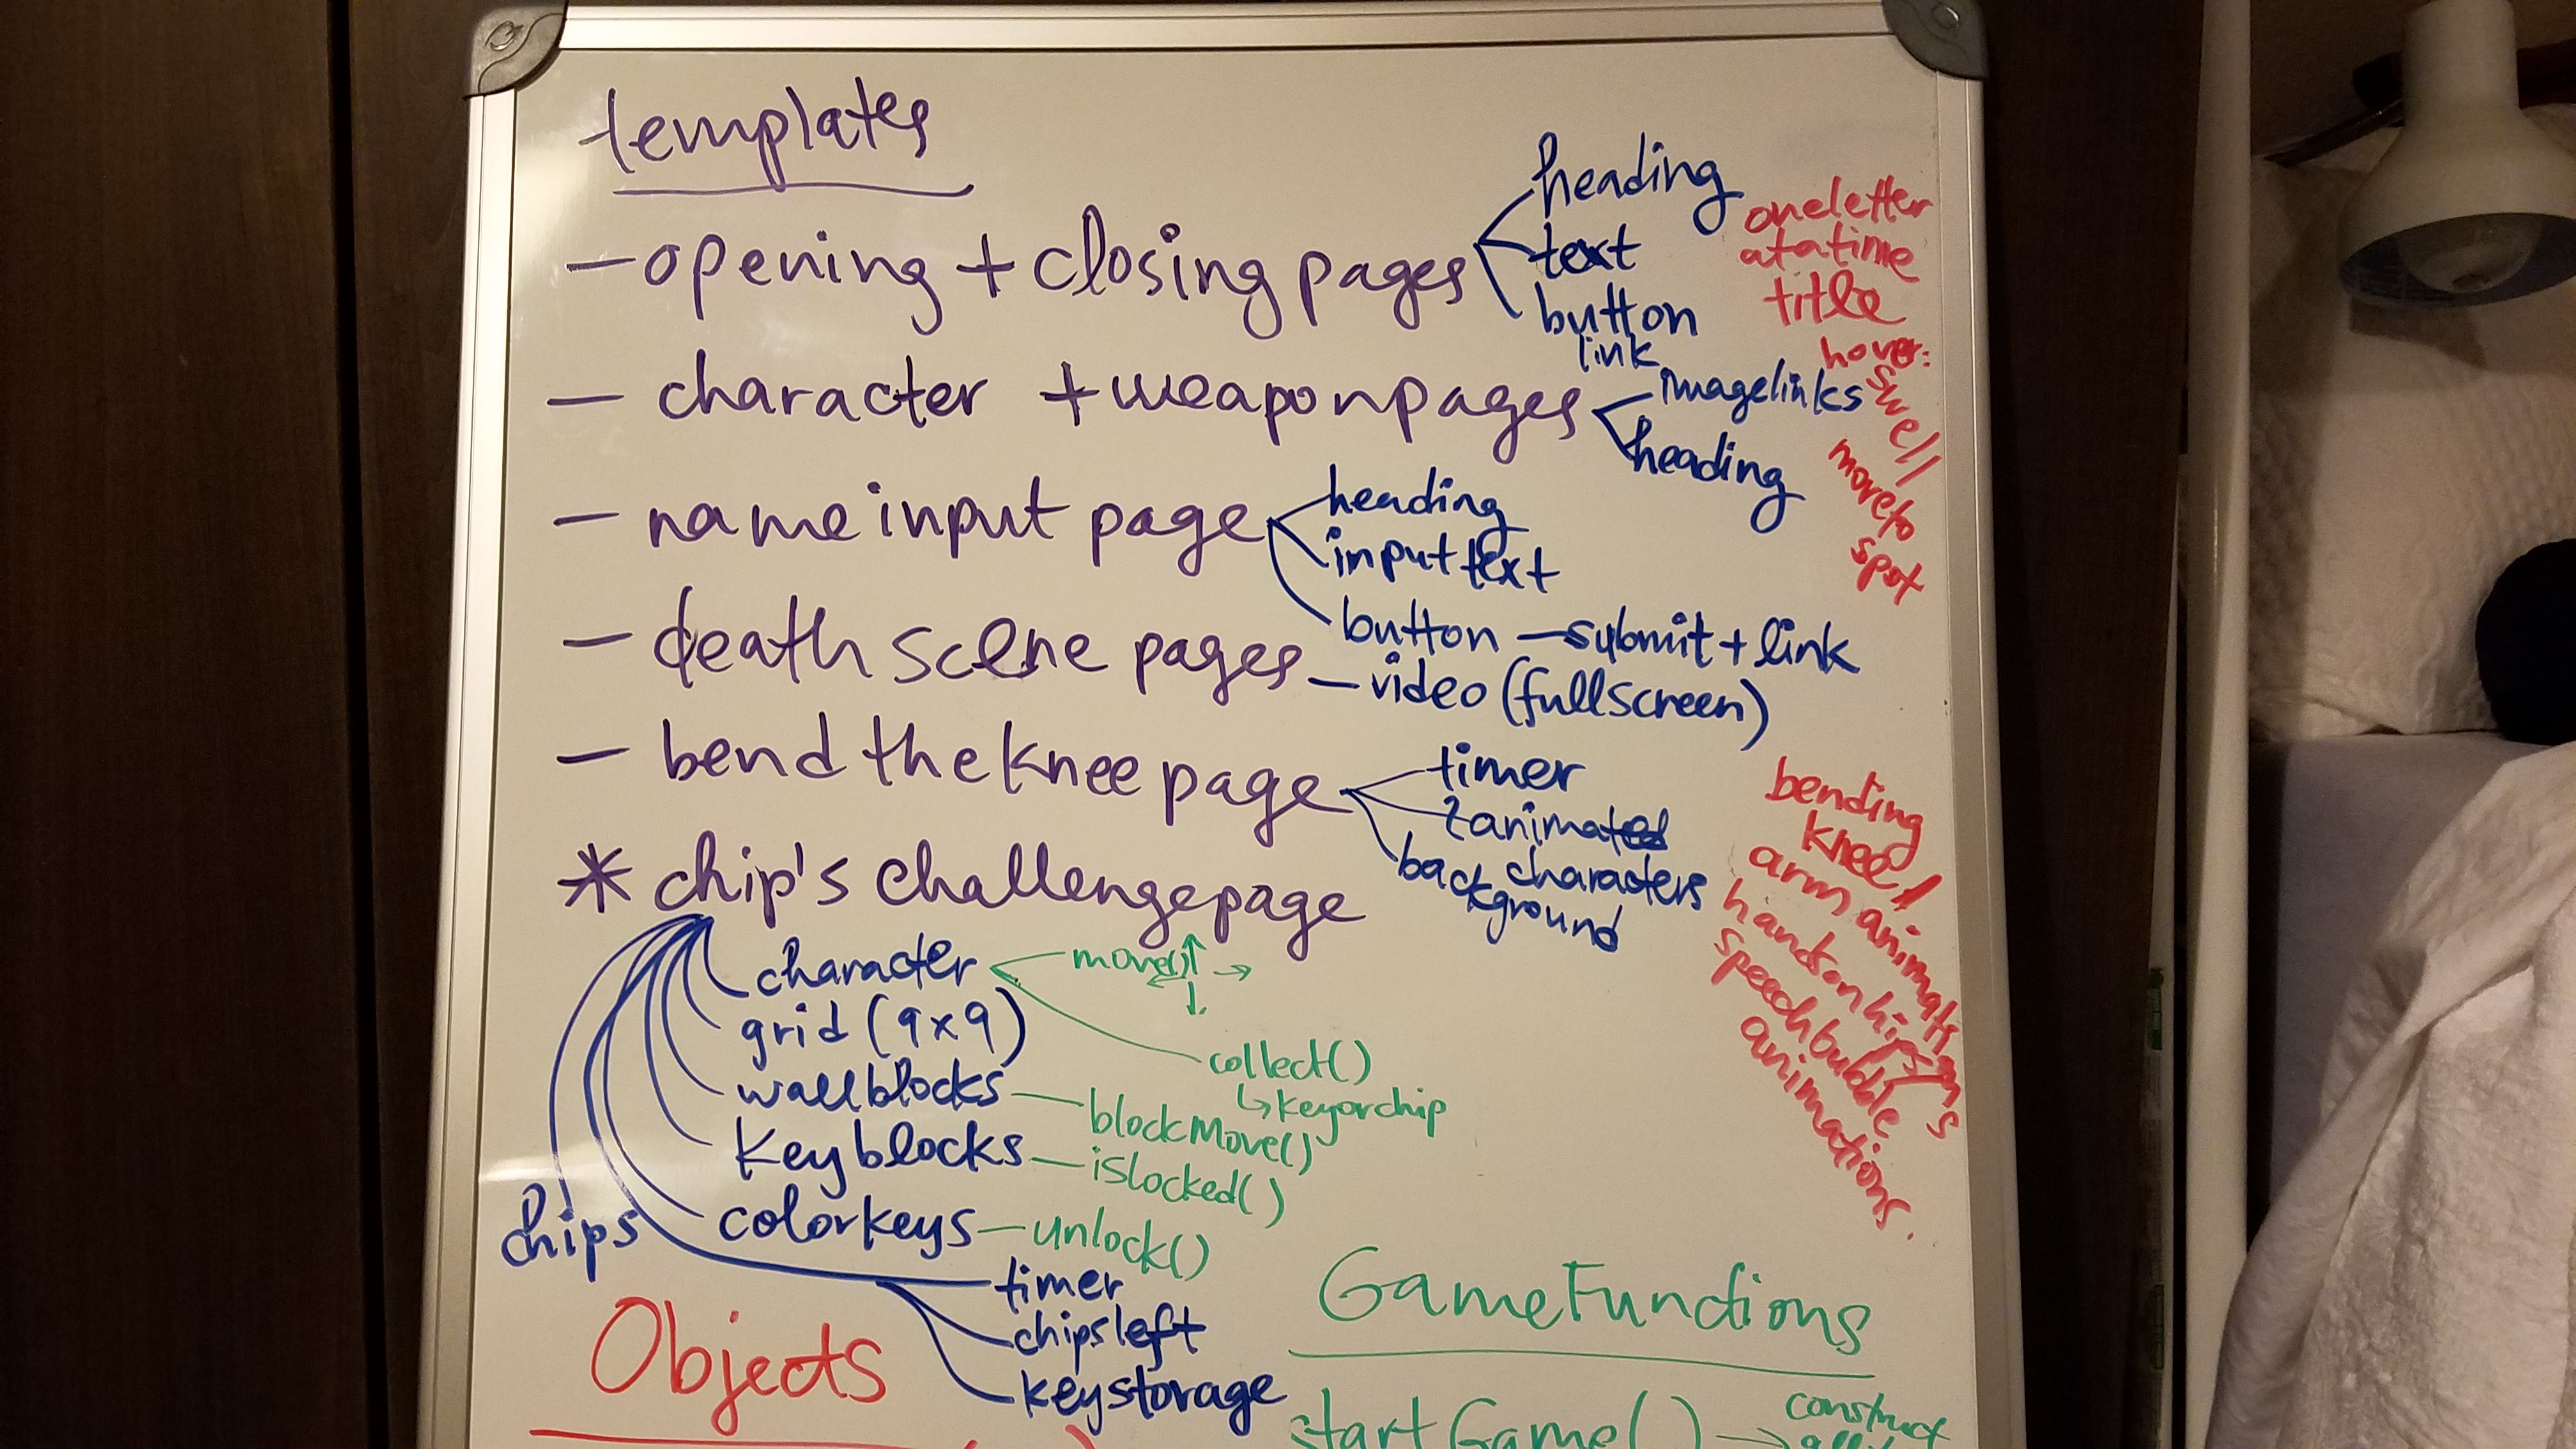 templates
- opening + closing pages
heading
text
button
link
one letter
at a time
title
- character + weapon pages
image links
heading
hover:
swell
move to
spot
- name input page
heading
input text
button - submit + link
- death scene pages - video (fullscreen)
- bend the knee page
timer
2 animated
characters
background
bending
knee /
arm animations
hands on hips
speech bubble
animations.
* chip's challenge page
character
move() ↑ → ← ↓
collect()
↳ key or chip
grid (9x9)
wall blocks - block move()
key blocks - islocked()
color keys - unlock()
chips
timer
chips left
key storage
Objects
Game Functions
start Game() → construct